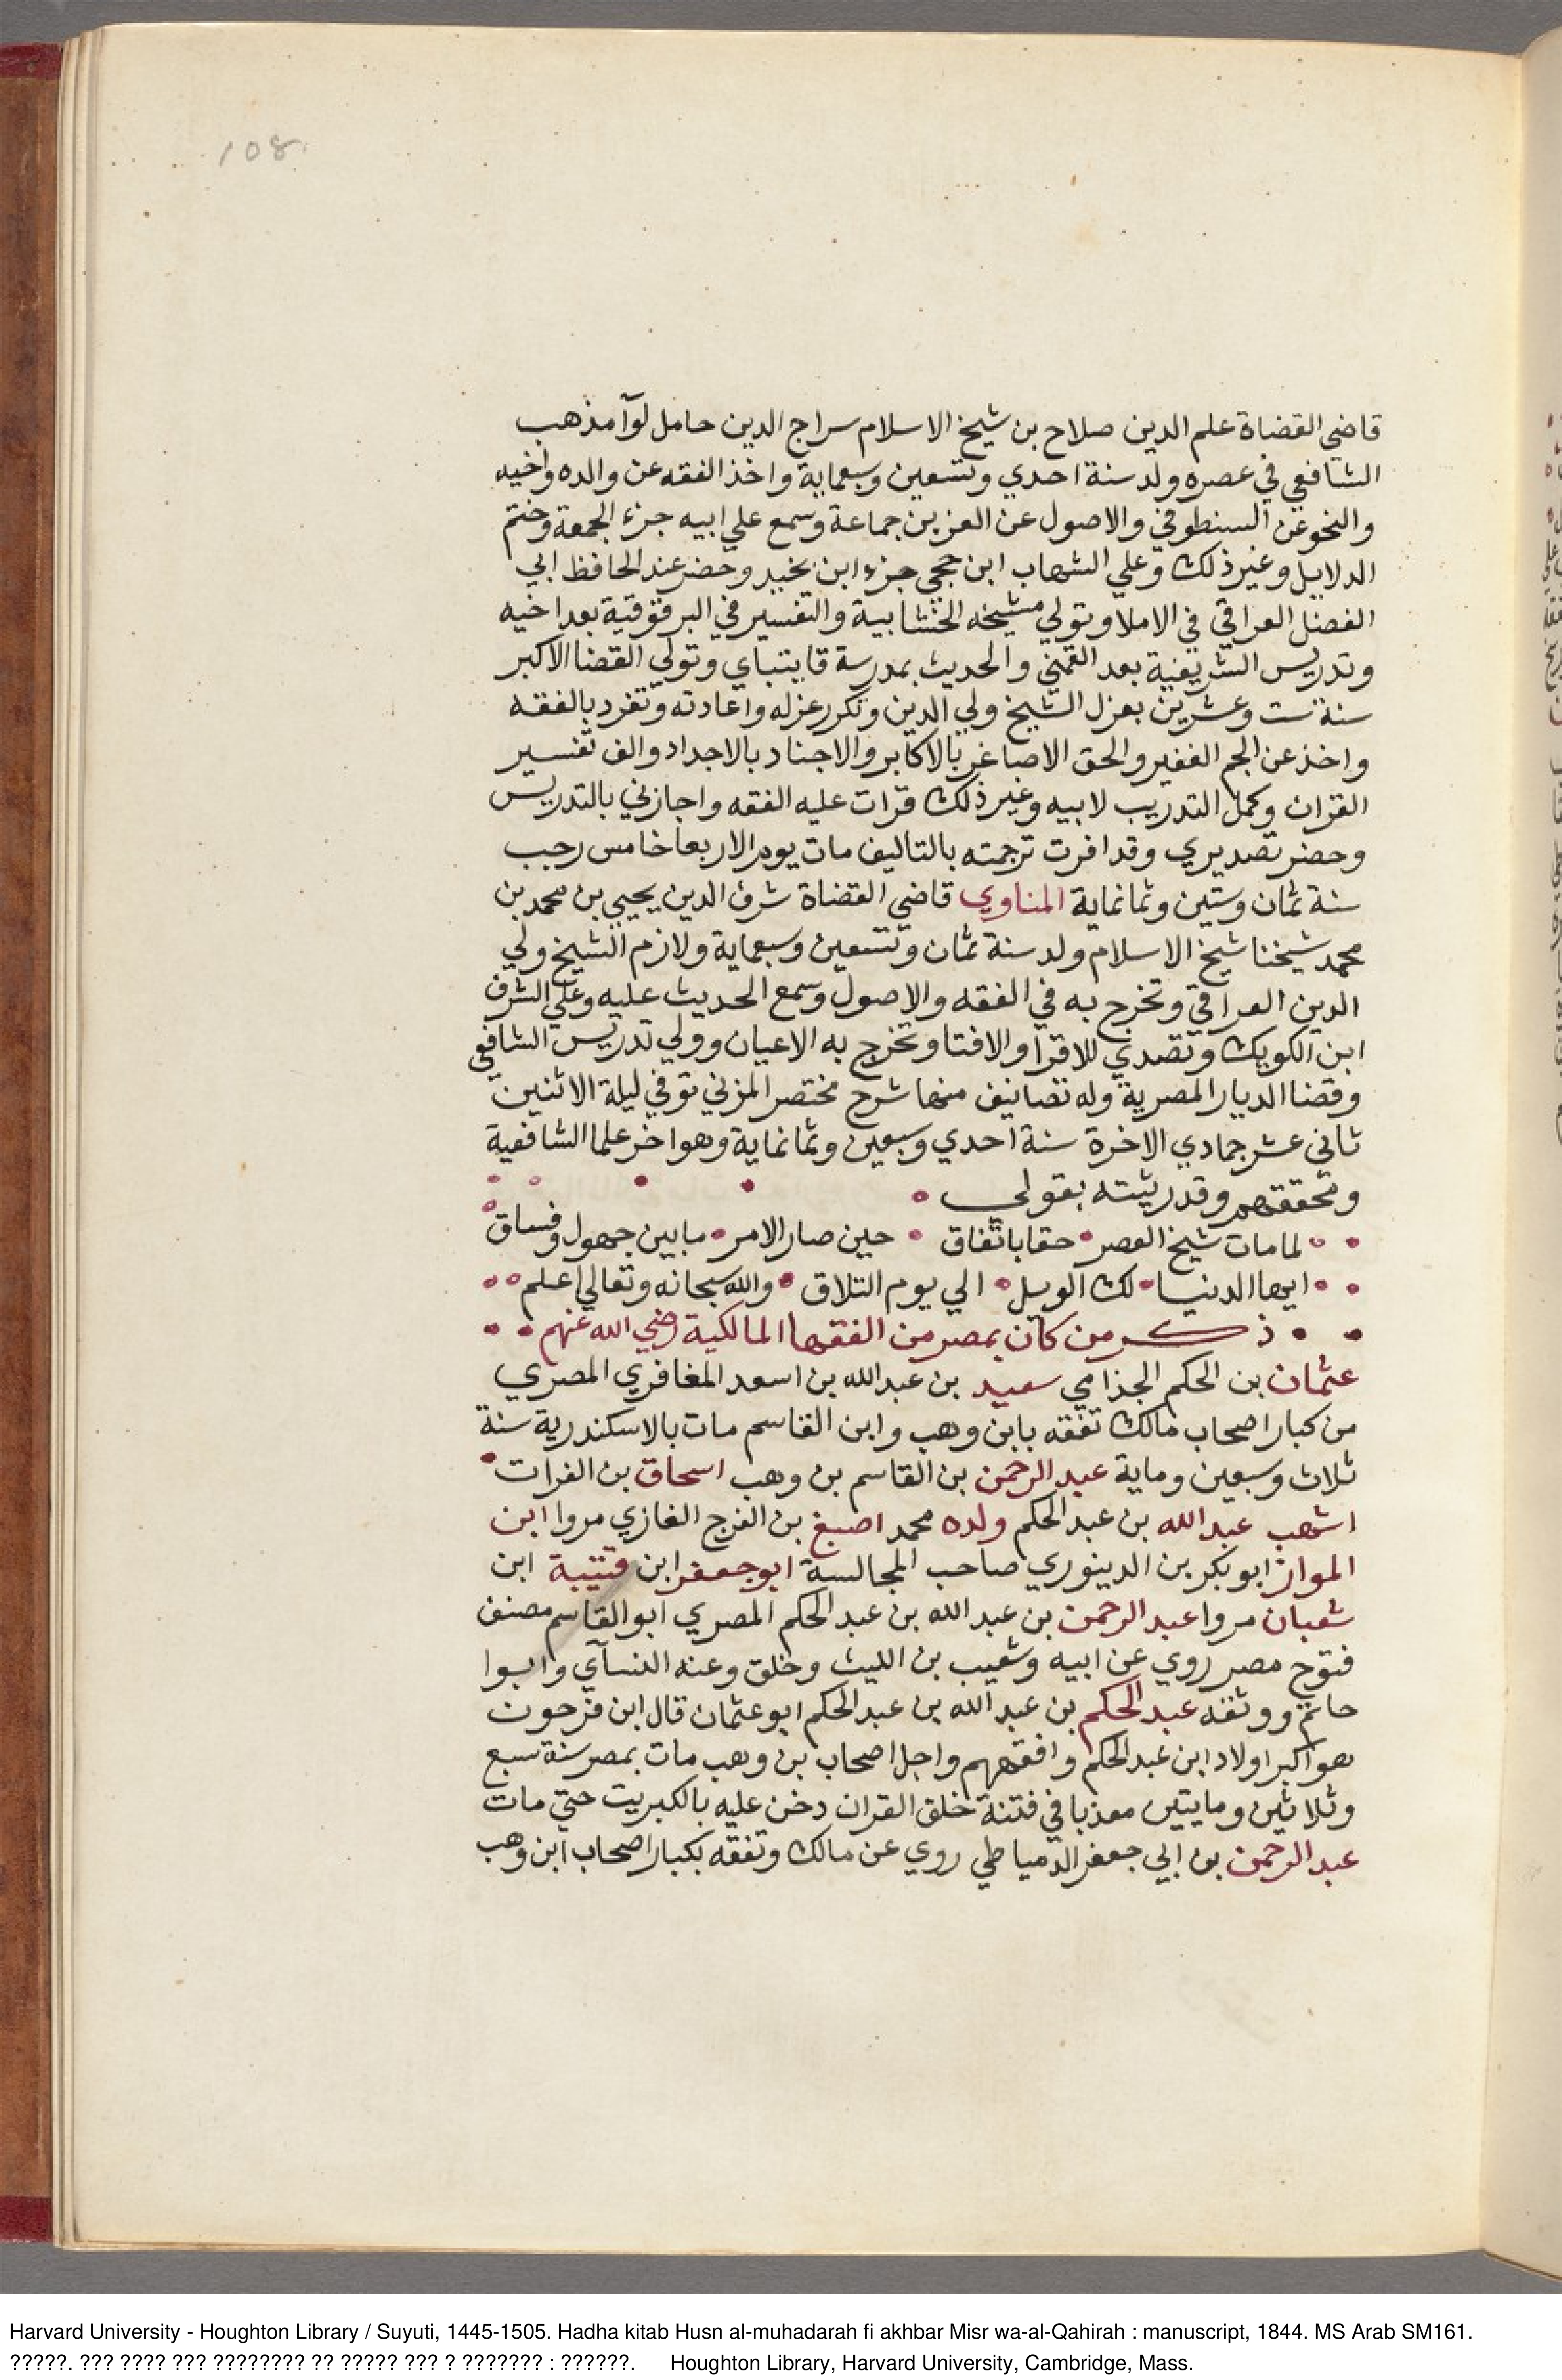 108
قاضي القضاة علم الدين صلاح بن شيخ الاسلام سراج الدين حامل لوآ مذهب
الشافعي في عصره ولد سنة احدي وتسعين وسبعماية واخذ الفقه عن والده واخيه
والنحو عن السنطوفي والاصول عن العز بن جماعة وسمع علي ابيه جزء الجمعة وختم
الدلايل وغير ذلك وعلي الشهاب ابن حجي جزء ابن نجيد وحضر عند الحافظ ابي
الفضل العراقي في الاملا وتولي مشيخه الخشابية والتفسير في البرقوقية بعد اخيه
وتدريس الشريفية بعد القمني والحديث بمدرسة قايتباي وتولي القضا الاكبر
سنة ست وعشرين بعزل الشيخ ولي الدين وتكرر عزله واعادته وتفرد بالفقه
واخذ عن الجم الغفير والحق الاصاغر بالاكابر والاجناد بالاجداد والف تفسير
القران وكمل التدريب لابيه وغير ذلك قرات عليه الفقه واجازني بالتدريس
وحضر تصديري وقد افرت ترجمته بالتاليف مات يوم الاربعا خامس رجب
سنة ثمان وستين وثمانماية المناوي قاضي القضاة شرف الدين يحيي بن محمد بن
محمد شيخنا شيخ الاسلام ولد سنة ثمان وتسعين وسبعماية ولازم الشيخ ولي
الدين العراقي وتخرج به في الفقه والاصول وسمع الحديث عليه وعلي الشرف
ابن الكويك وتصدي للاقرا والافتا وتخرج به الاعيان وولي تدريس الشافعي
وقضا الديار المصرية وله تصانيف منها شرح مختصر المزني توفي ليلة الاثنين
ثاني عشر جمادي الاخرة سنة احدي وسبعين وثمانماية وهو اخر علما الشافعية
ومحققهم وقد رثيته بقولي
لما مات شيخ العصر حقا باتفاق حين صار الامر ما بين جهول وفساق
ايها الدنيا لك الويل الي يوم التلاق والله سبحانه وتعالي اعلم
ذكر من كان بمصر من الفقها المالكية رضي الله عنهم
عثمان بن الحكم الجذامي سعيد بن عبد الله بن اسعد المغافري المصري
من كبار اصحاب مالك تفقه بابن وهب وابن القاسم مات بالاسكندرية سنة
ثلاث وسبعين وماية عبد الرحمن بن القاسم بن وهب اسحاق بن الفرات
اشهب عبد الله بن عبد الحكم ولده محمد اصبغ بن الفرج الغازي مروا ابن
المواز ابو بكر بن الدينوري صاحب المجالسة ابو جعفر ابن قتيبة ابن
شعبان مروا عبد الرحمن بن عبد الله بن عبد الحكم المصري ابو القاسم مصنف
فتوح مصر روي عن ابيه وشعيب بن الليث وخلق وعنه النسآي وابوا
حاتم ووثقه عبد الحكم بن عبد الله بن عبد الحكم ابو عثمان قال ابن فرحون
هو اكبر اولاد ابن عبد الحكم وافقههم واجل اصحاب بن وهب مات بمصر سنة سبع
وثلاثين ومايتين معذبا في فتنة خلق القران دخن عليه بالكبريت حتي مات
عبد الرحمن بن ابي جعفر الدمياطي روي عن مالك وتفقه بكبار اصحاب ابن وهب
Harvard University - Houghton Library / Suyuti, 1445-1505. Hadha kitab Husn al-muhadarah fi akhbar Misr wa-al-Qahirah : manuscript, 1844. MS Arab SM161.
?????. ??? ???? ??? ???????? ?? ????? ??? ? ??????? : ??????. Houghton Library, Harvard University, Cambridge, Mass.